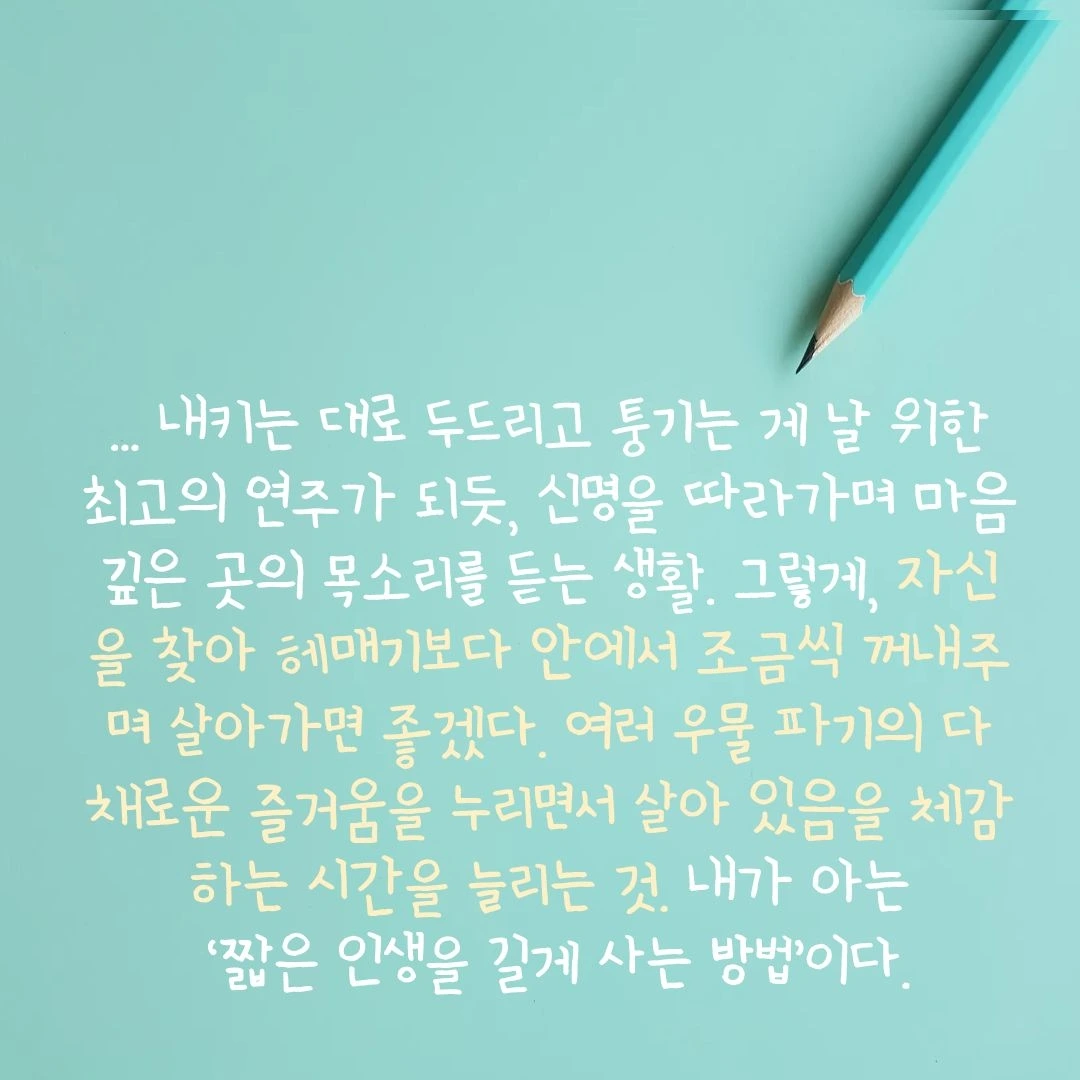 ... 내키는 대로 두드리고 퉁기는 게 날 위한
최고의 연주가 되듯, 신명을 따라가며 마음
깊은 곳의 목소리를 듣는 생활. 그렇게, 자신
을 찾아 헤매기보다 안에서 조금씩 꺼내주
며 살아가면 좋겠다. 여러 우물 파기의 다
채로운 즐거움을 누리면서 살아 있음을 체감
하는 시간을 늘리는 것. 내가 아는
‘짧은 인생을 길게 사는 방법’이다.